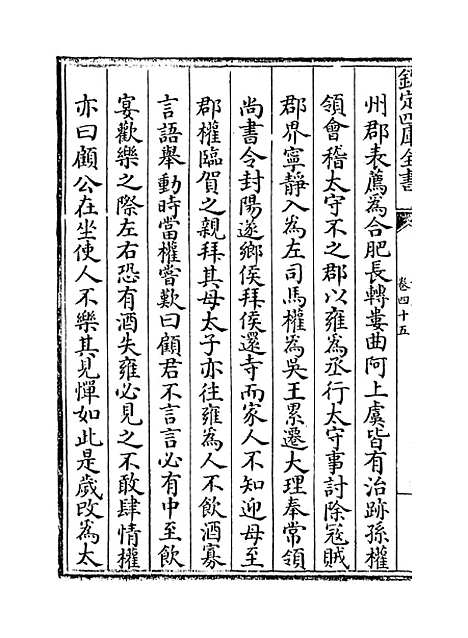 欽定四庫全書
卷四十五
州郡表薦為合肥長轉婁曲阿上虞皆有治跡孫權
領會稽太守不之郡以雍為丞行太守事討除冦賊
郡界寧靜入為左司馬權為吳王累遷大理奉常領
尚書令封陽遂鄉侯拜侯還寺而家人不知迎母至
郡權臨賀之親拜其母太子亦往雍為人不飲酒寡
言語舉動時當權嘗歎曰顧君不言言必有中至飲
宴歡樂之際左右恐有酒失雍必見之不敢肆情權
亦曰顧公在坐使人不樂其見憚如此是歲改為太